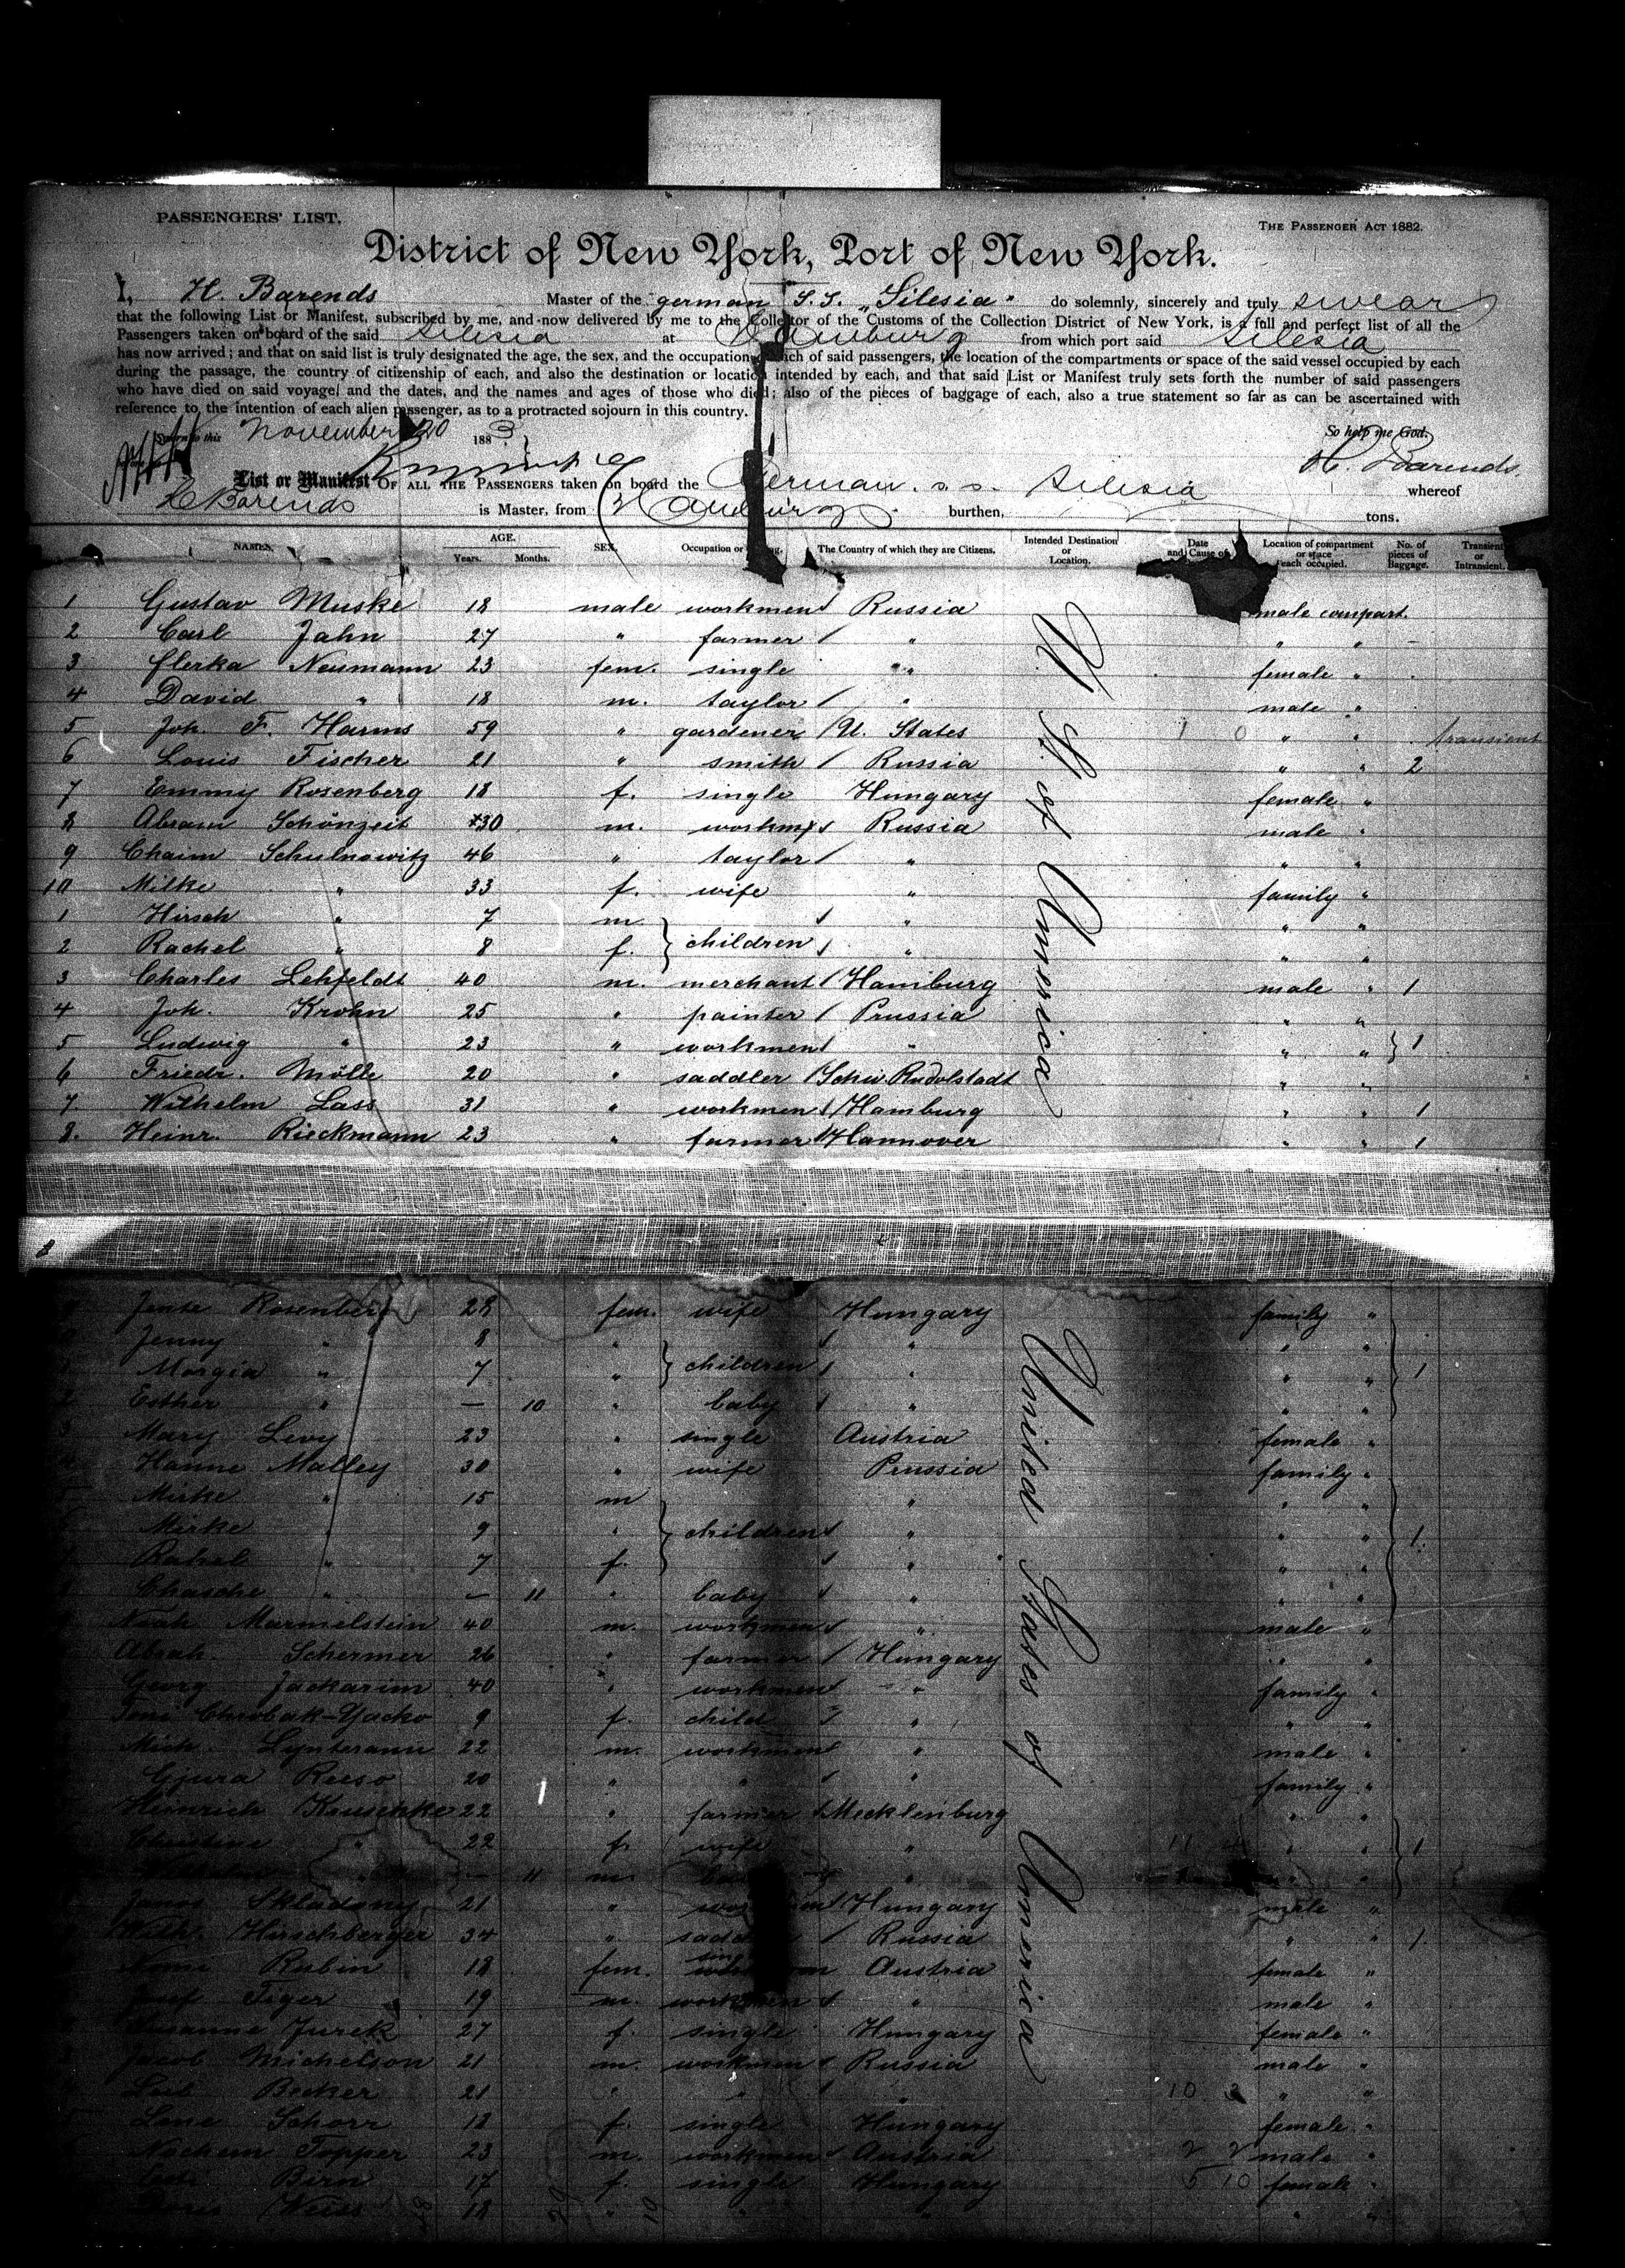 PASSENGERS' LIST.
THE PASSENGER ACT 1882.
District of New York, Port of New York.
I, H. Barends Master of the german S.S. „Silesia" do solemnly, sincerely and truly swear
that the following List or Manifest, subscribed by me, and now delivered by me to the Collector of the Customs of the Collection District of New York, is a full and perfect list of all the
Passengers taken on board of the said Silesia at Hamburg from which port said Silesia
has now arrived; and that on said list is truly designated the age, the sex, and the occupation of each of said passengers, the location of the compartments or space of the said vessel occupied by each
during the passage, the country of citizenship of each, and also the destination or location intended by each, and that said List or Manifest truly sets forth the number of said passengers
who have died on said voyage, and the dates, and the names and ages of those who died; also of the pieces of baggage of each, also a true statement so far as can be ascertained with
reference to the intention of each alien passenger, as to a protracted sojourn in this country.
Sworn to this November 20 1883 So help me God.
H. Barends
List or Manifest OF ALL THE PASSENGERS taken on board the German s.s. Silesia whereof
H Barends is Master, from Hamburg burthen, tons.
NAMES. AGE. Years. Months. SEX. Occupation or The Country of which they are Citizens. Intended Destination or Location. Date and Cause of Location of compartment or space each occupied. No. of pieces of Baggage. Transient or Intransient.
1 Gustav Muske 18 male workmen Russia male compart.
2 Carl Jahn 27 " farmer " " "
3 Neumann 23 fem. single " female "
4 David " 18 m. taylor " male "
5 Joh. F. Harms 59 " gardener U. States 1 0 " " transient
6 Louis Fischer 21 " smith Russia " " 2
7 Emmy Rosenberg 18 f. single Hungary female "
8 Abram Schönzeit 30 m. workm Russia male "
9 Chaim Schulnowitz 46 " taylor " " "
10 Milke " 33 f. wife " family "
1 Hirsch " 7 m. " " "
2 Rachel " 8 f. children " " "
3 Charles Lehfeldt 40 m. merchant Hamburg male " 1
4 Joh. Krohn 25 " painter Prussia " "
5 Ludwig " 23 " workmen " " " 1
6 Friedr. Mölle 20 " saddler Schw. Rudolstadt " "
7. Wilhelm Lass 31 " workmen Hamburg " " 1
8. Heinr. Rieckmann 23 " farmer Hannover " " 1
U. St. of America
Jente Rosenberg 28 fem. wife Hungary family "
Jenny " 8 " " " "
1 Morgia " 7 " children " " " 1
2 Esther " — 10 " baby " " "
3 Mary Levy 23 " single Austria female "
4 Hanne Malley 30 " wife Prussia family "
5 Mirke " 15 m " " "
Mirke " 9 " children " " " 1.
Rahel " 7 f. " " "
Chasche " — 11 " baby " " "
Noah Marmelstein 40 m. workmen " male "
Abrah. Schermer 26 " farmer Hungary " "
Georg Jackarim 40 " workmen " family "
Chrobak-Yacko 9 f. child " " "
Mich. 22 m. workmen " male "
Gjura Reeso 20 " " " family "
Heinrich Kruschke 22 " farmer Mecklenburg " "
Christine " 22 f. wife " 11 4 " " 1
— 11 m. " " "
Janos Skladany 21 " Hungary male "
Wilh. Hirschberger 34 " Russia " " 1
Rubin 18 fem. Austria female "
Josef Feger 19 m. workmen " male "
Susanne Jurek 27 f. single Hungary female "
Jacob Michelson 21 m. workmen Russia male "
Leib Becker 21 " " " 10 3 " "
5 Lene Schorr 18 f. single Hungary female "
Nochem Topper 23 m. workmen Austria 2 2 male "
Birn 17 f. single Hungary 5 10 female "
Doris Weiss 18 " " " " "
United States of America